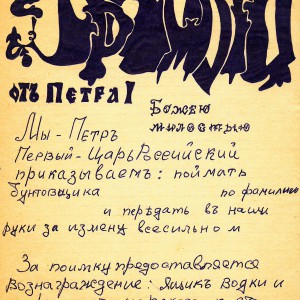 отъ Петра I
Божею
милостью
Мы - Петръ
Первый - Царь Российский
приказываем: поймать
бунтовщика по фамилии
и передать в наши
руки за измену всесильном
За поимку предоставляется
вознаграждение: ящикъ водки и